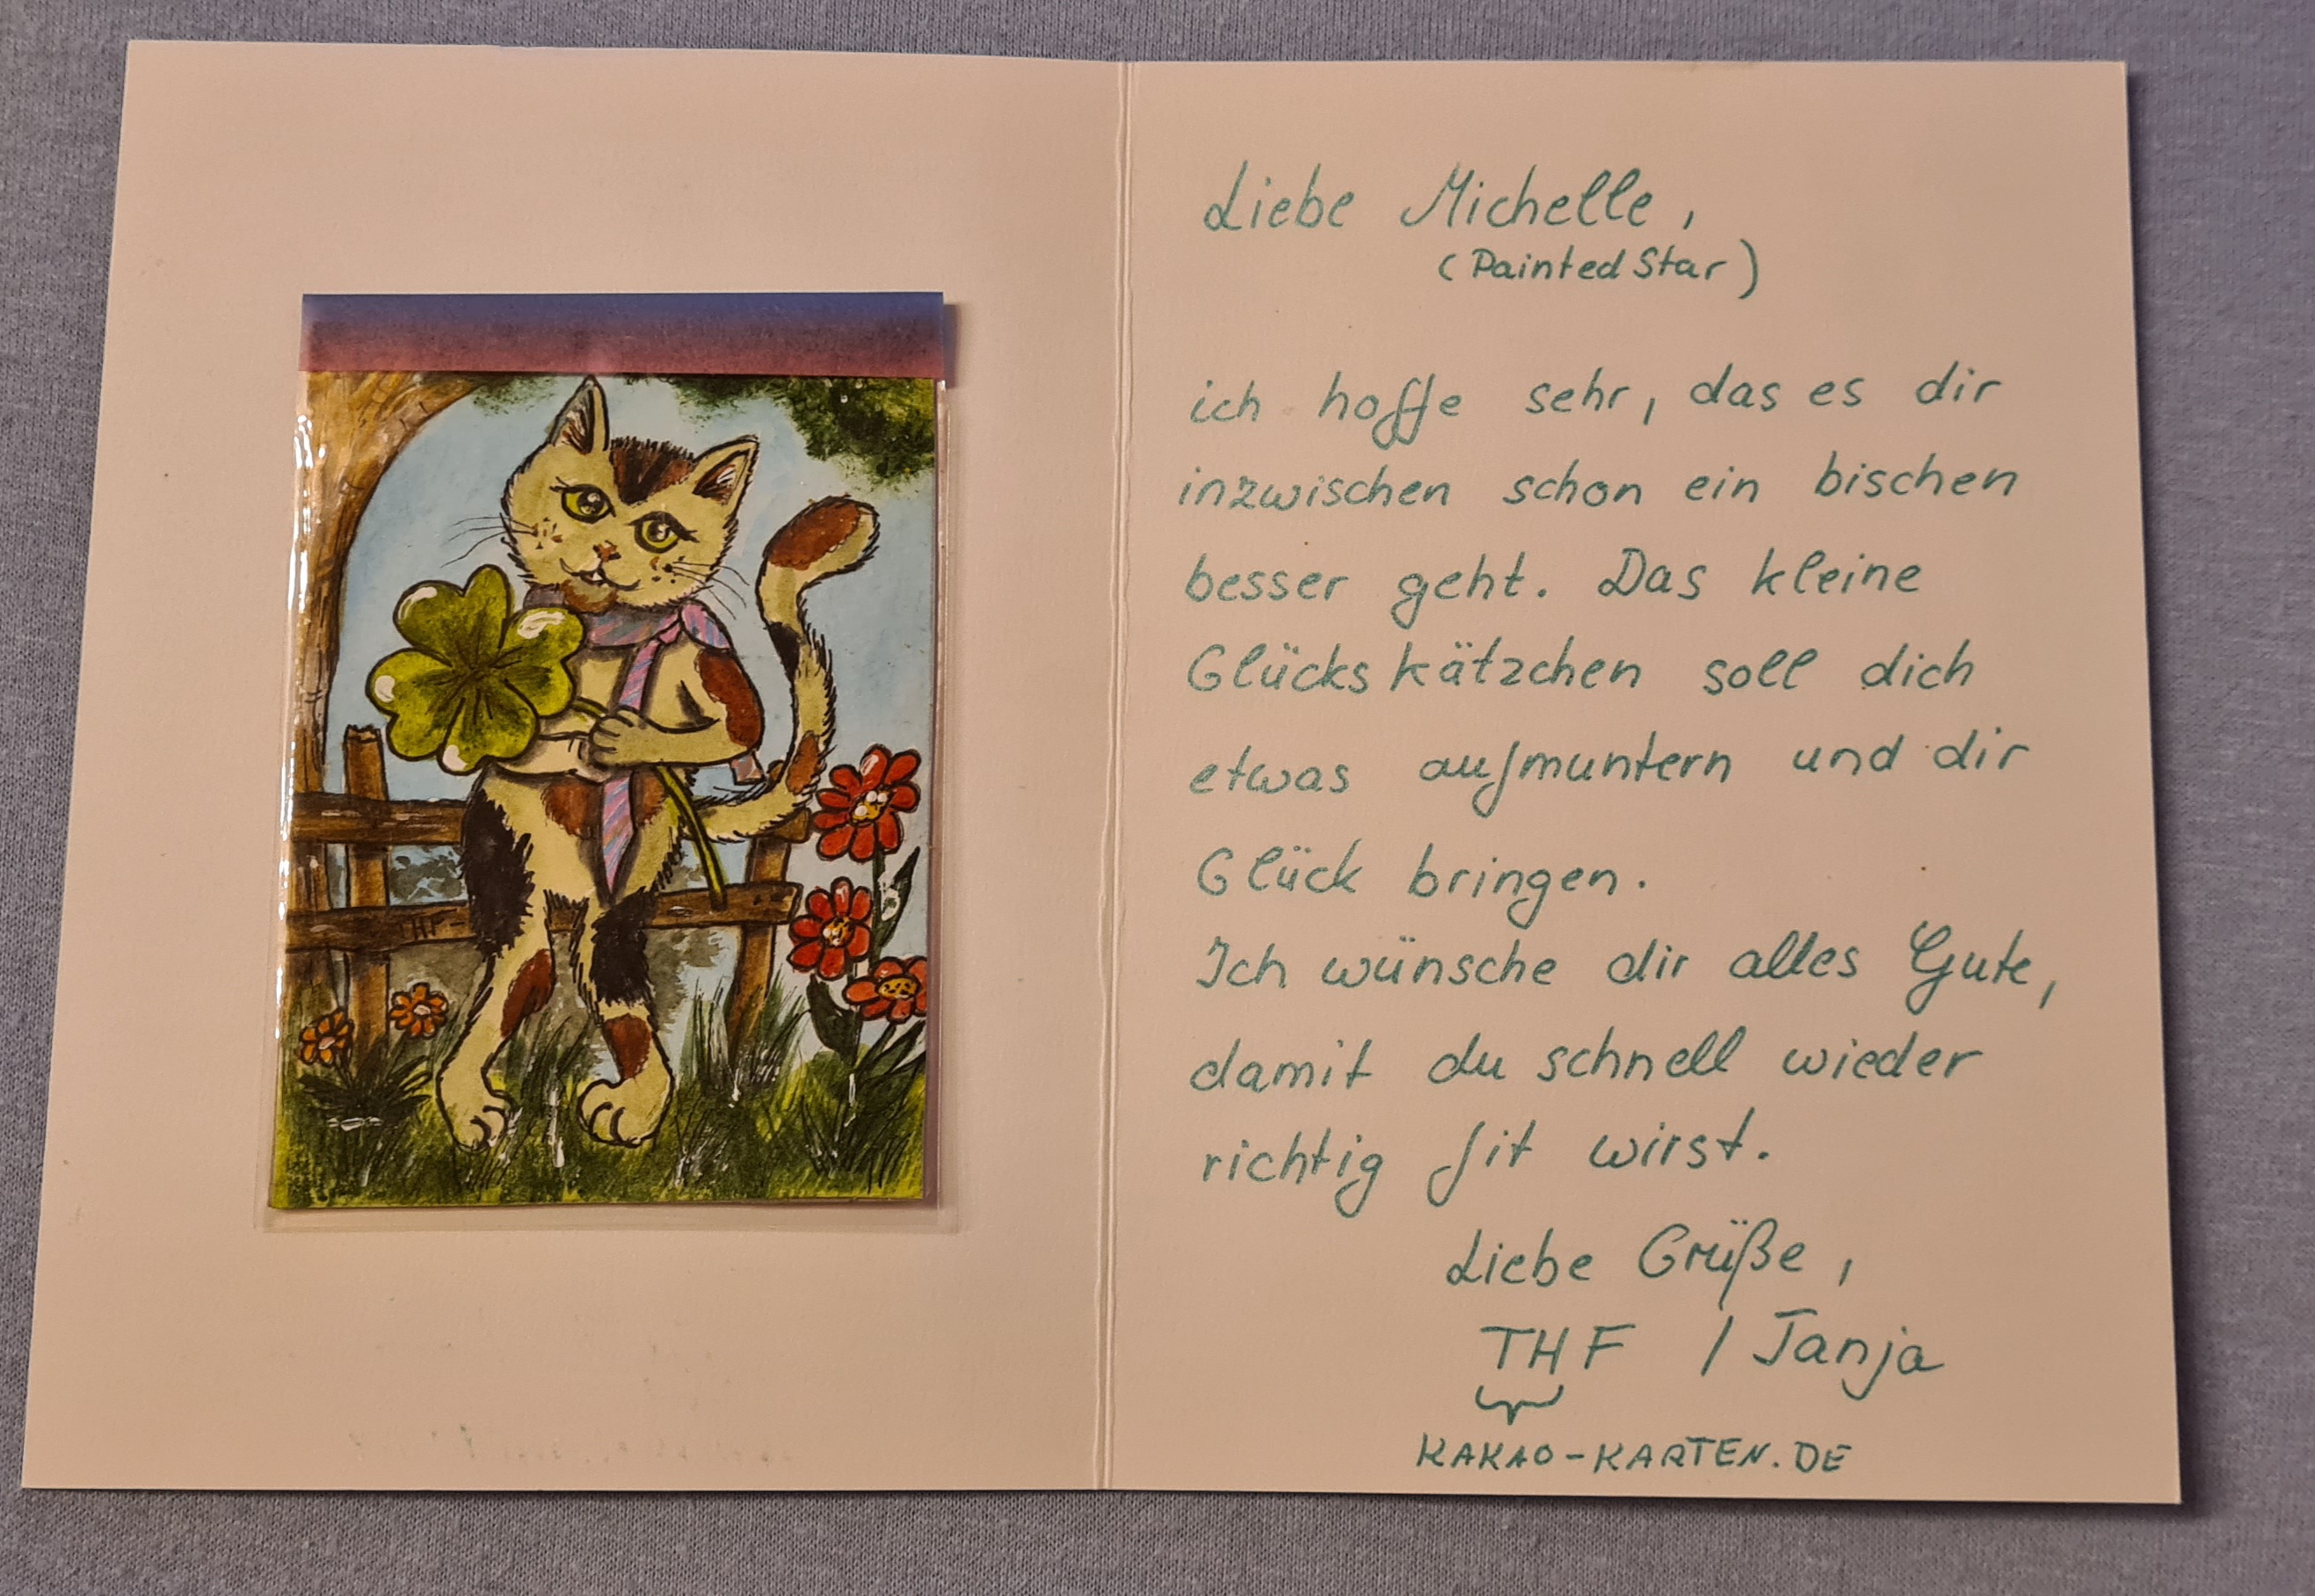 Liebe Michelle,
(Painted Star)
ich hoffe sehr, das es dir
inzwischen schon ein bischen
besser geht. Das kleine
Glückskätzchen soll dich
etwas aufmuntern und dir
Glück bringen.
Ich wünsche dir alles Gute,
damit du schnell wieder
richtig fit wirst.
Liebe Grüße,
THF / Tanja
KAKAO-KARTEN.DE